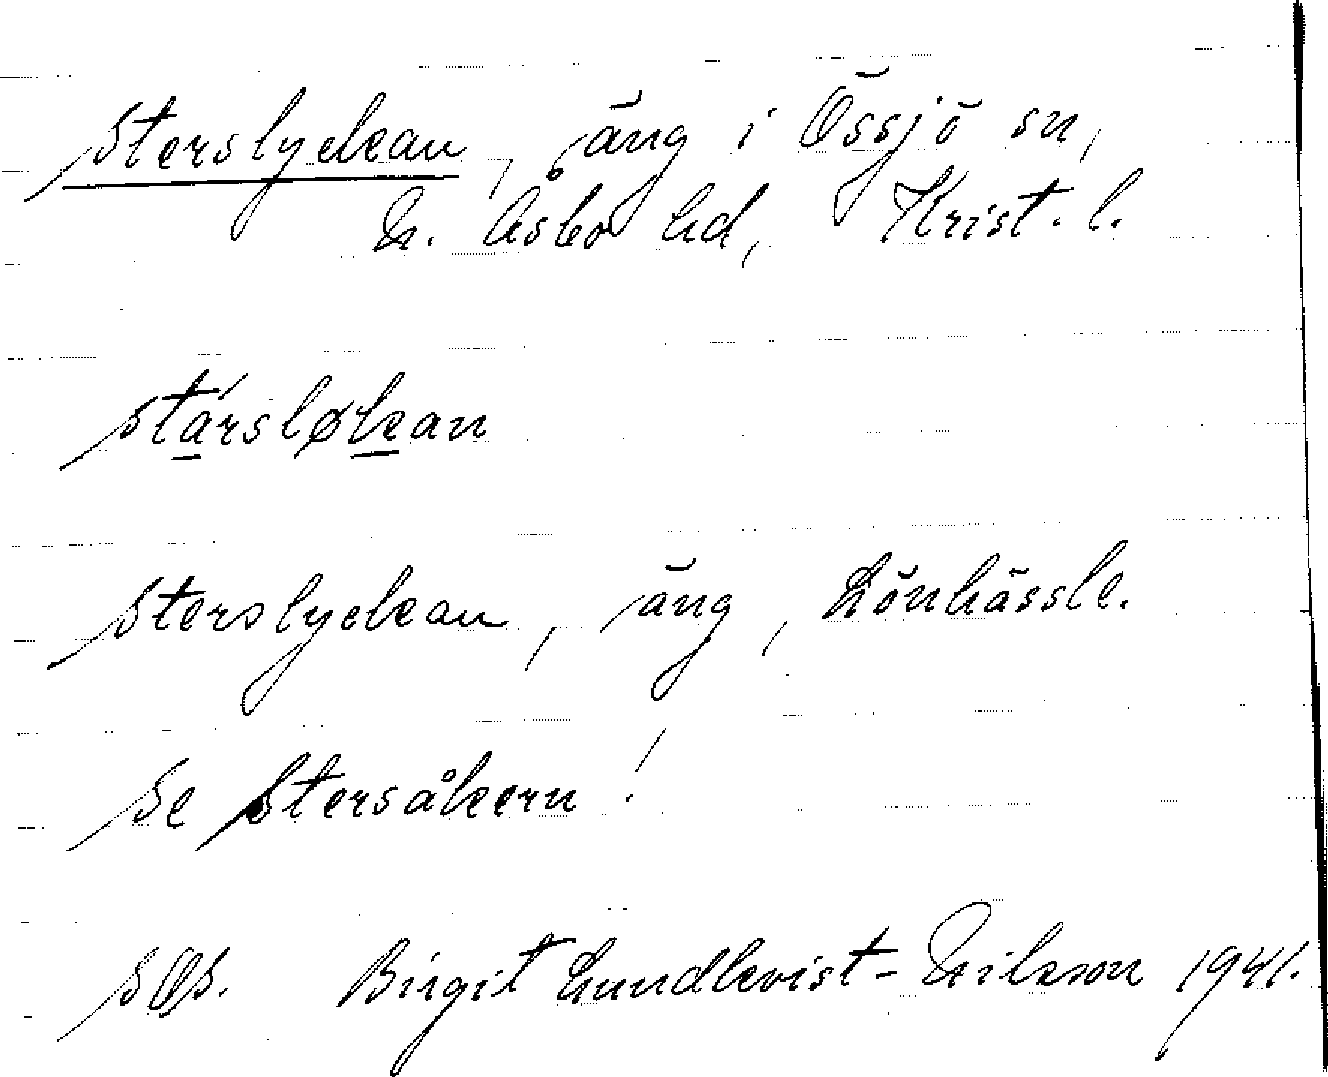 Sterslyckan, äng i Össjö sn,
N. Åsbo hd, Krist. l.
stársløkan
Sterslyckan, äng, Lönhässle.
Se Stersåkern!
Birgit Lundkvist-Nilsson 1941.